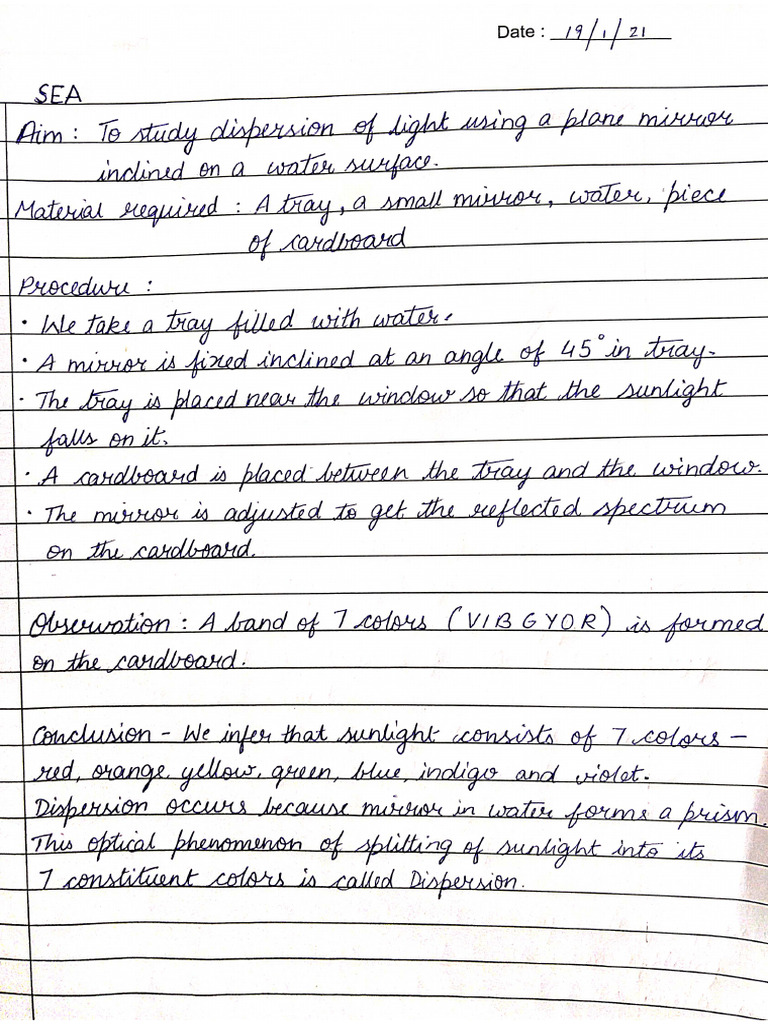 Date : 19/1/21
SEA
Aim : To study dispersion of light using a plane mirror
inclined on a water surface.
Material required : A tray, a small mirror, water, piece
of cardboard
Procedure :
· We take a tray filled with water.
· A mirror is fixed inclined at an angle of 45° in tray.
· The tray is placed near the window so that the sunlight
falls on it.
· A cardboard is placed between the tray and the window.
· The mirror is adjusted to get the reflected spectrum
on the cardboard.
Observation : A band of 7 colors (VIBGYOR) is formed
on the cardboard.
Conclusion - We infer that sunlight consists of 7 colors -
red, orange, yellow, green, blue, indigo and violet.
Dispersion occurs because mirror in water forms a prism.
This optical phenomenon of splitting of sunlight into its
7 constituent colors is called Dispersion.